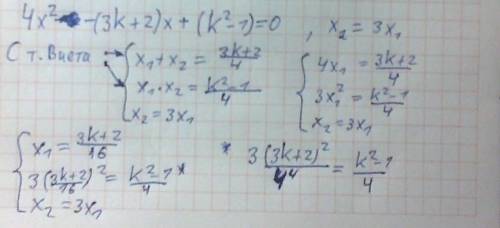 4x² - (3k+2)x + (k²-1) = 0 , x₂ = 3x₁
С т. Виета
{ x₁ + x₂ = (3k+2)/4
x₁ · x₂ = (k²-1)/4
x₂ = 3x₁
{ 4x₁ = (3k+2)/4
3x₁² = (k²-1)/4
x₂ = 3x₁
{ x₁ = (3k+2)/16
3((3k+2)/16)² = (k²-1)/4 *
x₂ = 3x₁
* 3(3k+2)²/4⁴ = (k²-1)/4